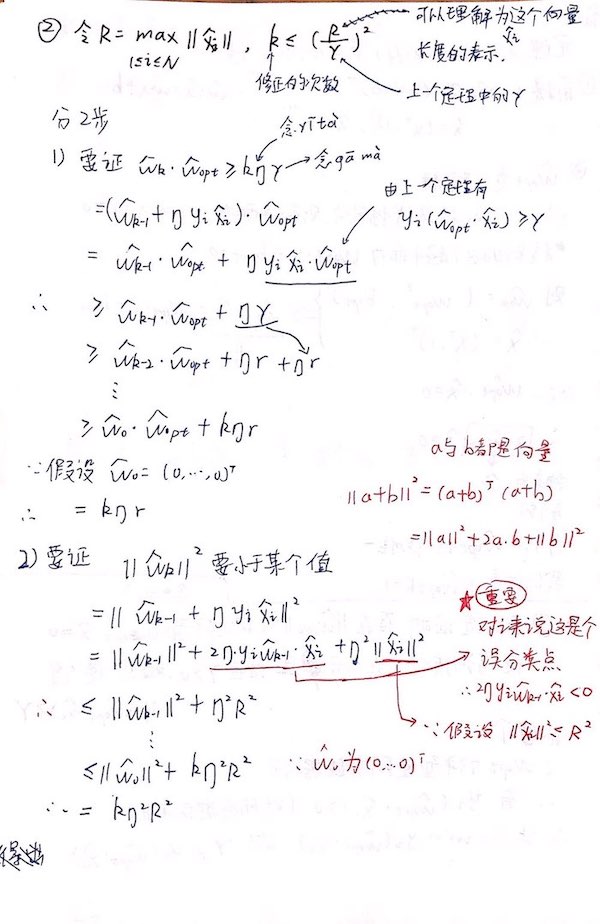 ② 令 R = max ||x̂i||, k ≤ (R/γ)²
1≤i≤N
可以理解为这个向量x̂i
长度的表示.
修正的次数
上个定理中的γ
分2步
念yī tà
1) 要证 ŵk·ŵopt ≥ kηγ → 念gā mà
由上一个定理有
yi(ŵopt·x̂i) ≥ γ
= (ŵk-1 + η yi x̂i)·ŵopt
= ŵk-1·ŵopt + η yi x̂i·ŵopt
∴ ≥ ŵk-1·ŵopt + ηγ
≥ ŵk-2·ŵopt + ηr + ηr
⋮
≥ ŵ0·ŵopt + kηr
∵ 假设 ŵ0 = (0,…,0)ᵀ
∴ = kηr
a与b都是向量
||a+b||² = (a+b)ᵀ(a+b)
= ||a||² + 2a·b + ||b||²
2) 要证 ||ŵk||² 要小于某个值
= ||ŵk-1 + η yi x̂i||²
= ||ŵk-1||² + 2η·yi ŵk-1·x̂i + η²||x̂i||²
★ 重要
对i来说这是个
误分类点
∴ 2η yi ŵk-1·x̂i < 0
∵ 假设 ||x̂i||² ≤ R²
∴ ≤ ||ŵk-1||² + η²R²
⋮
≤ ||ŵ0||² + kη²R² ∵ ŵ0 为 (0,…0)ᵀ
∴ = kη²R²